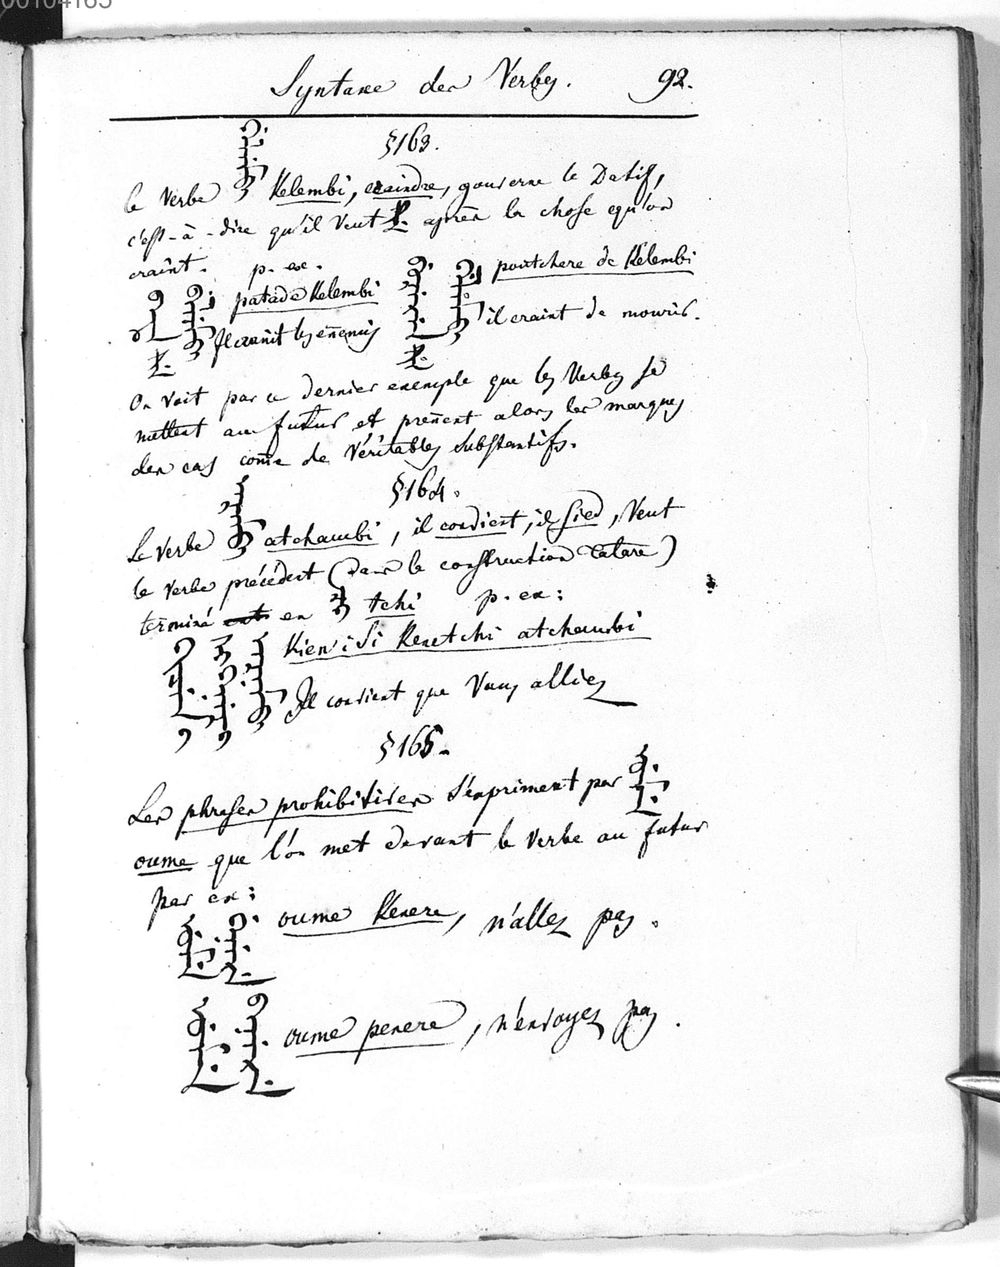 00104165
Syntaxe des Verbes. 92.
§163.
le Verbe ᡤᡝᠯᡝᠮᠪᡳ Kelembi, craindre, gouverne le Datif,
c'est-à-dire qu'il Veut ᡩᡝ après la chose qu'on
craint. p. ex.
patade Kelembi
Il craint les eñemis
poutchere de Kelembi
il craint de mourir.
On voit par ce dernier exemple que les Verbes se
mettent au futur et preñent alors les marques
des cas coñe de Véritables substantifs.
§164.
Le Verbe ᠠᠴᠠᠮᠪᡳ atchambi, il convient, il sied, Veut
le Verbe précédent (dans la construction Tatare)
terminé en ᠴᡳ tchi p. ex:
Kien i Si Kenetchi atchambi
Il convient que Vous alliez
§165.
Les phrases prohibitives s'expriment par ᡠᠮᡝ
oume que l'on met devant le Verbe au futur
par ex:
ᡠᠮᡝ ᡤᡝᠨᡝᡵᡝ oume Kenere, n'allez pas.
ᡠᠮᡝ oume penere, n'envoyez pas.